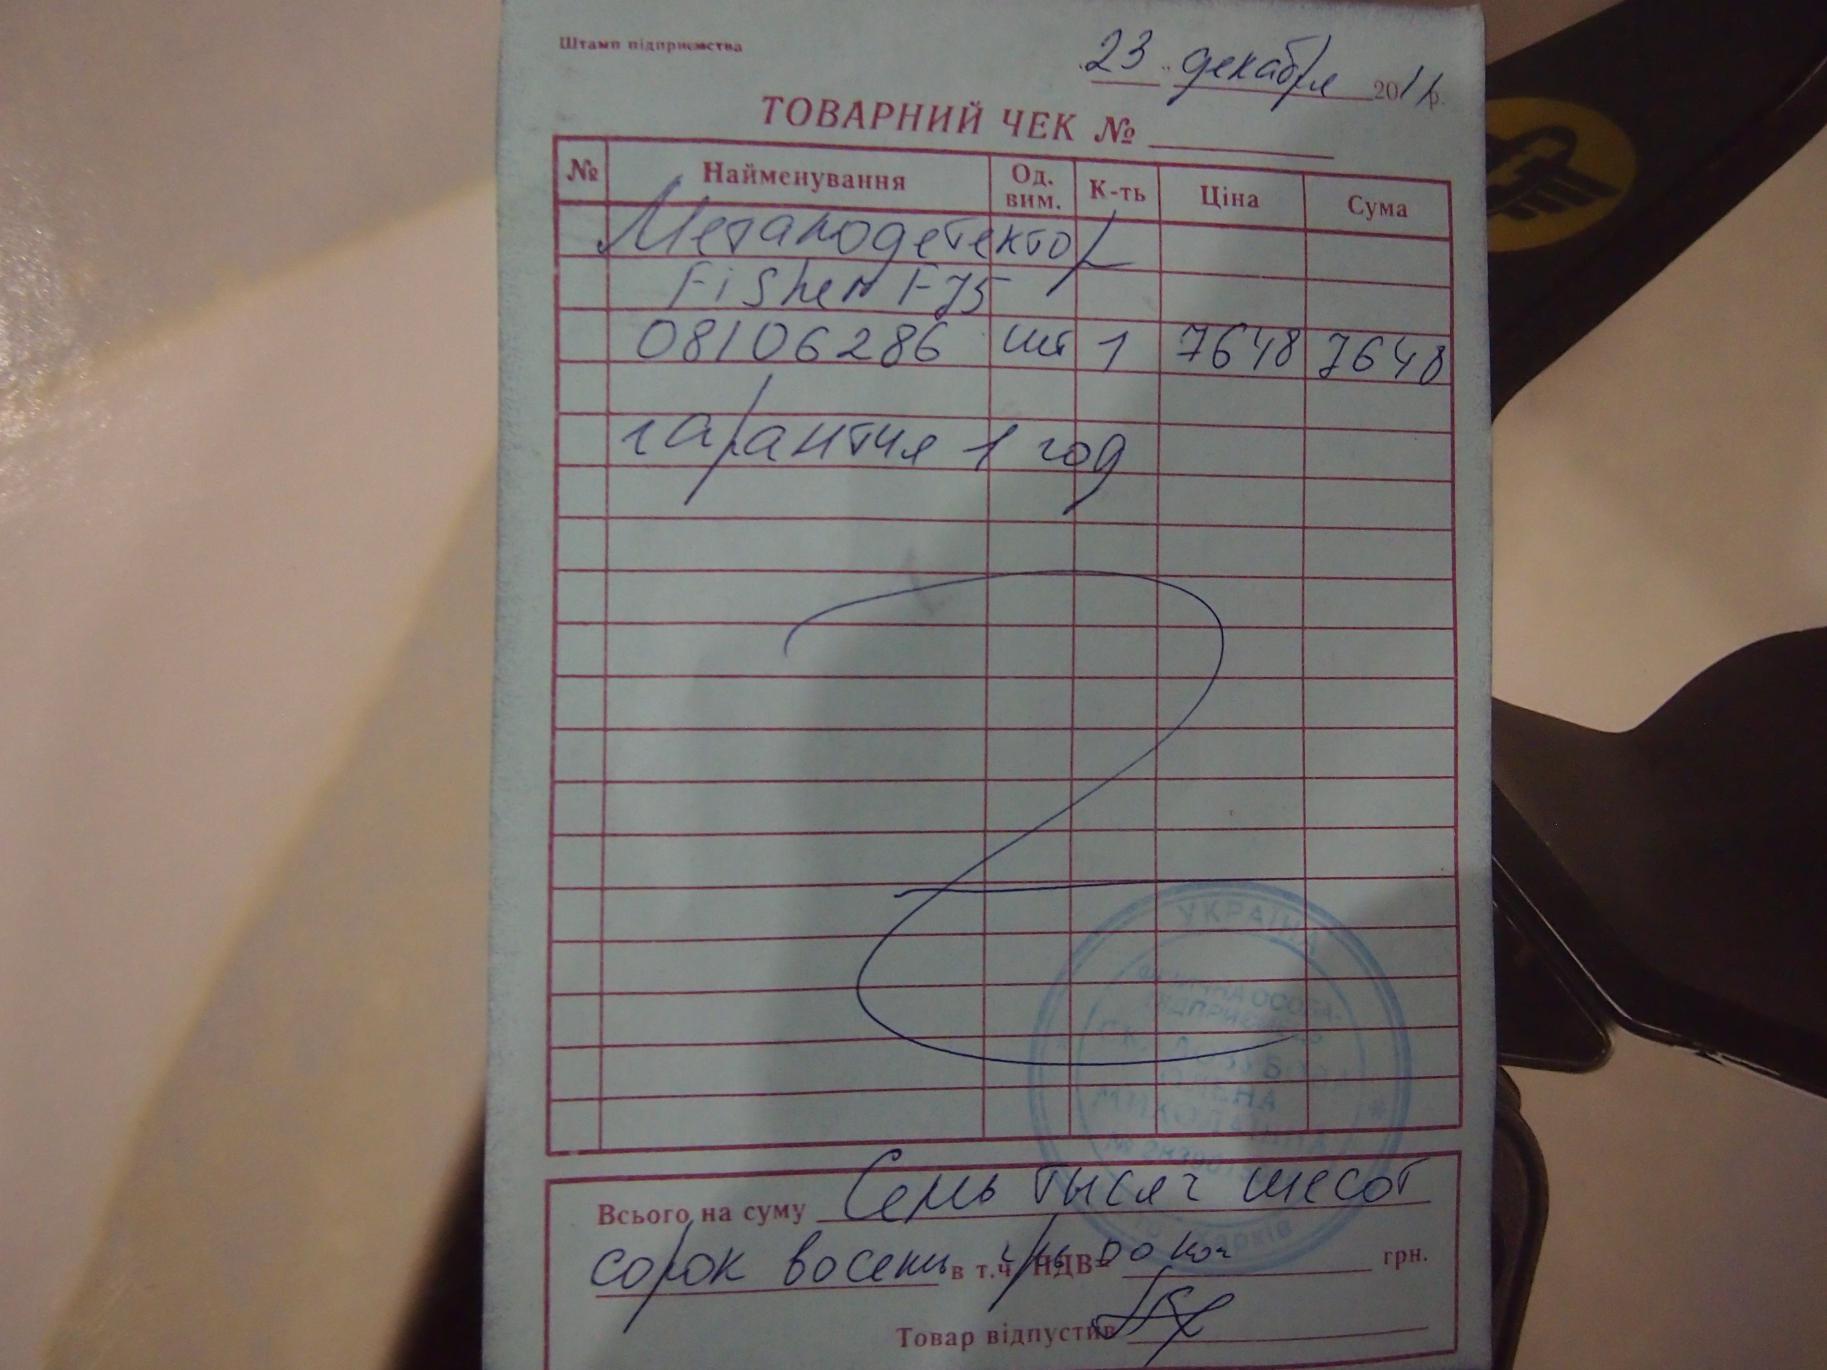 Штамп підприємства
23 декабря 2011 р.
ТОВАРНИЙ ЧЕК №
№ Найменування Од. вим. К-ть Ціна Сума
Металодетектор
Fisher F75
08106286 шт 1 7648 7648
гарантия 1 год
УКРАЇНА
ОСОБА-
ПІДПРИЄМЕЦЬ
ОЛЕНА
МИКОЛАЇВНА
Харків
Всього на суму Семь тысяч шесот
сорок восемь в т.ч. ПДВ грн 00 коп грн.
Товар відпустив